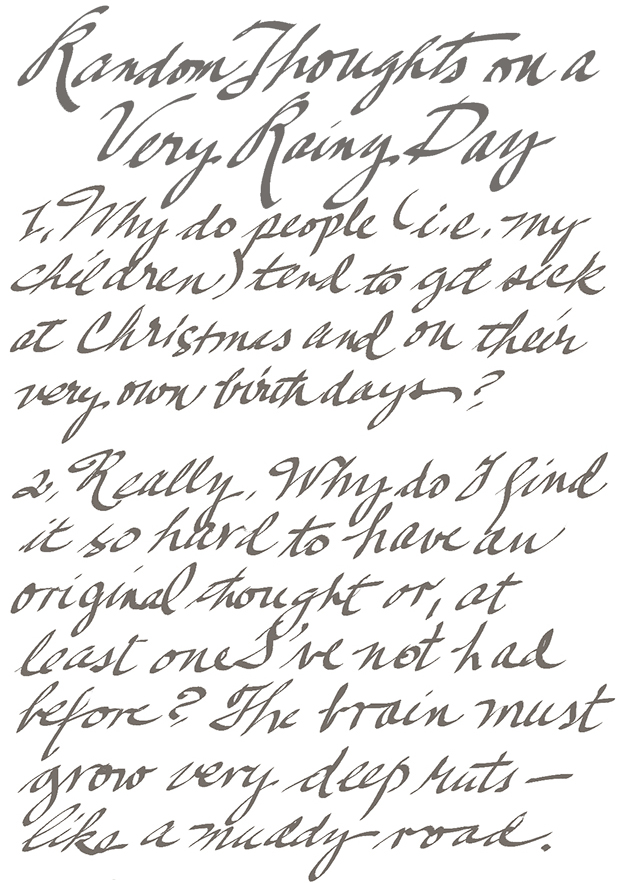 Random Thoughts on a
Very Rainy Day
1. Why do people (i.e. my
children) tend to get sick
at Christmas and on their
very own birthdays?
2. Really, Why do I find
it so hard to have an
original thought or, at
least one I've not had
before? The brain must
grow very deep ruts—
like a muddy road.